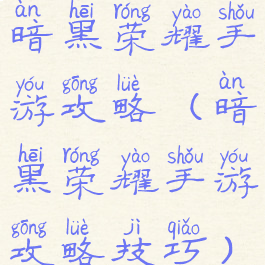 àn hēi róng yào shǒu
暗黑荣耀手
yóu gōng lüè àn
游攻略（暗
hēi róng yào shǒu yóu
黑荣耀手游
gōng lüè jì qiǎo
攻略技巧）